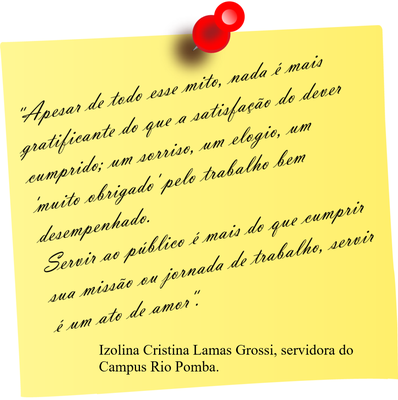 "Apesar de todo esse mito, nada é mais
gratificante do que a satisfação do dever
cumprido; um sorriso, um elogio, um
'muito obrigado' pelo trabalho bem
desempenhado.
Servir ao público é mais do que cumprir
sua missão ou jornada de trabalho, servir
é um ato de amor".
Izolina Cristina Lamas Grossi, servidora do
Campus Rio Pomba.